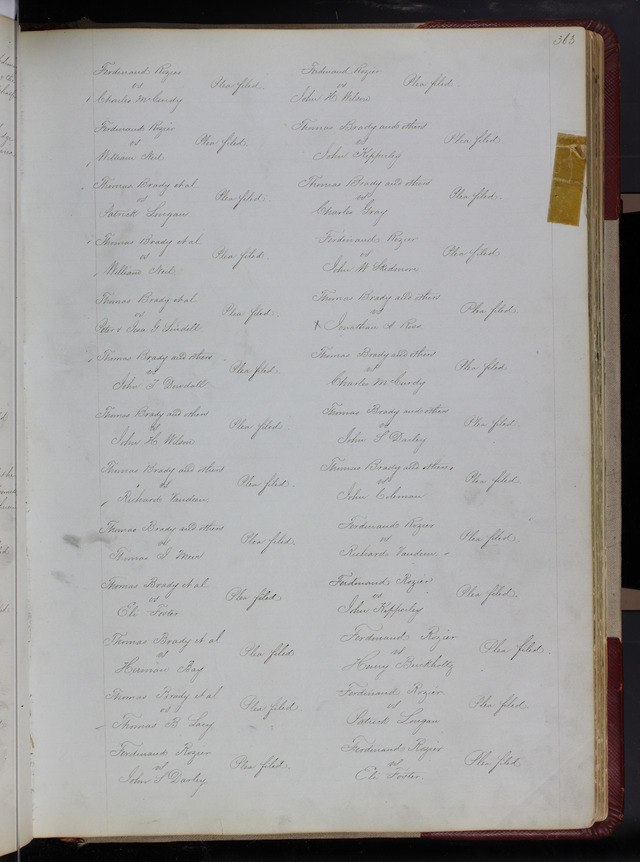 363
Ferdinand Rozier
vs Plea filed.
Charles McCurdy
Ferdinand Rozier
vs Plea filed.
William Neil
Thomas Brady et al
vs Plea filed.
Patrick Lingan
Thomas Brady et al
vs Plea filed.
William Neil
Thomas Brady et al
vs Plea filed.
Peter & Jesse G Lindell
Thomas Brady and others
vs Plea filed.
John T Dowdall
Thomas Brady and others
vs Plea filed.
John H Wilson
Thomas Brady and others
vs Plea filed.
Richard Vandeun
Thomas Brady and others
vs Plea filed.
Thomas I
Thomas Brady et al
vs Plea filed
Eli Foster
Thomas Brady et al
vs Plea filed
Herman Ray
Thomas Brady et al
vs Plea filed
Thomas B Lacy
Ferdinand Rozier
vs Plea filed.
John S Darley
Ferdinand Rozier
vs Plea filed.
John H Wilson
Thomas Brady and others
vs Plea filed.
John Kipperley
Thomas Brady and others
vs Plea filed.
Charles Gray
Ferdinand Rozier
vs Plea filed
John W
Thomas Brady and others
vs Plea filed.
X Jonathan A Ross
Thomas Brady and others
vs Plea filed.
Charles McCurdy
Thomas Brady and others
vs Plea filed.
John S Darley
Thomas Brady and others
vs Plea filed.
John Coleman
Ferdinand Rozier
vs Plea filed.
Richard Vandeun
Ferdinand Rozier
vs Plea filed.
John Kipperley
Ferdinand Rozier
vs Plea filed.
Henry Buckholtz
Ferdinand Rozier
vs Plea filed
Patrick Lingan
Ferdinand Rozier
vs Plea filed
Eli Foster.